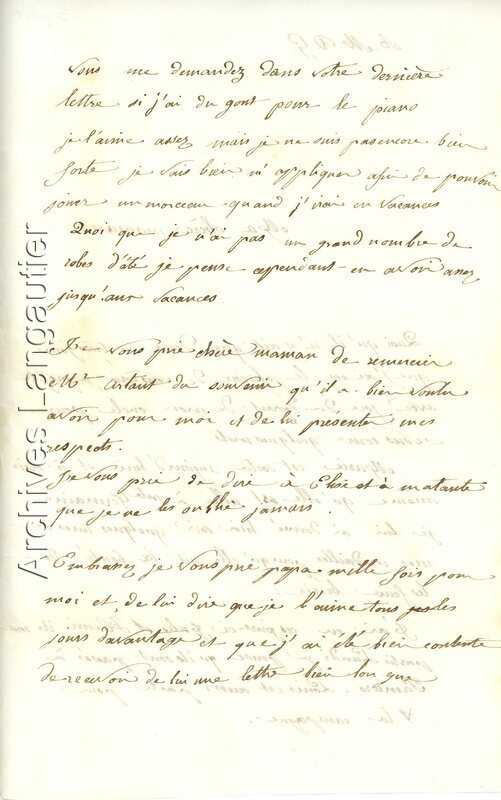 Vous me demandez dans votre dernière
lettre si j'ai du gout pour le piano
je l'aime assez mais je ne suis pas encore bien
forte je vais bien m'appliquer afin de pouvoir
jouer un morceau quand j'irai en vacances
Quoi que je n'ai pas un grand nombre de
robes d'été je pense cependant en avoir assez
jusqu'aux vacances
Je vous prie chère maman de remercier
Mr Artaut du souvenir qu'il a bien voulu
avoir pour moi et de lui présenter mes
respects.
Je vous prie de dire à Elise et à matante
que je ne les oublie jamais.
Embrassez je vous prie papa mille fois pour
moi et de lui dire que je l'aime tous les
jours davantage et que j'ai été bien contente
de recevoir de lui une lettre bien longue
Archives Langautier